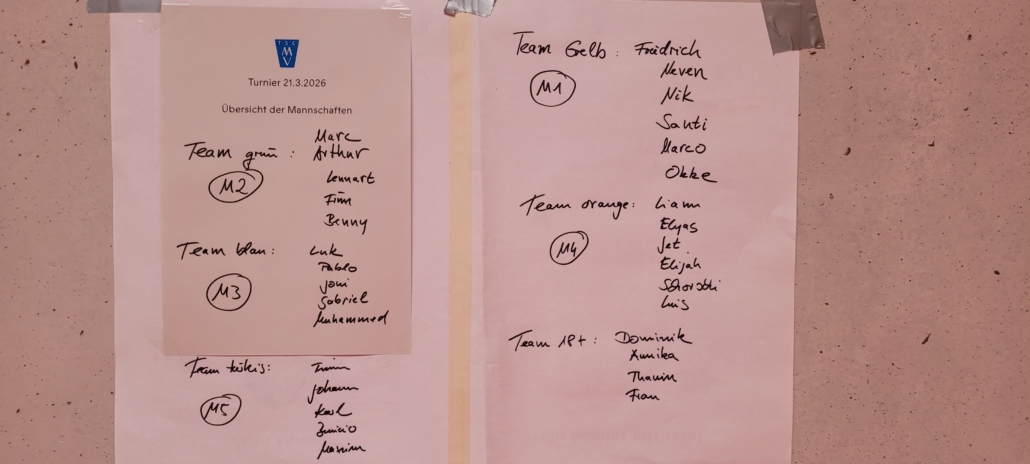 TSC
MV
Turnier 21.3.2026
Übersicht der Mannschaften
Marc
Team grün : Arthur
M2
Lennart
Finn
Benny
Team blau: Luk
Pablo
M3
Joni
Gabriel
Muhammed
Team türkis:
Johann
M5
Karl
Team Gelb : Friedrich
M1
Neven
Nik
Santi
Marco
Okke
Team orange: Liam
Elyas
M4
Jet
Elijah
Luis
Team 18+ : Dominik
Annika